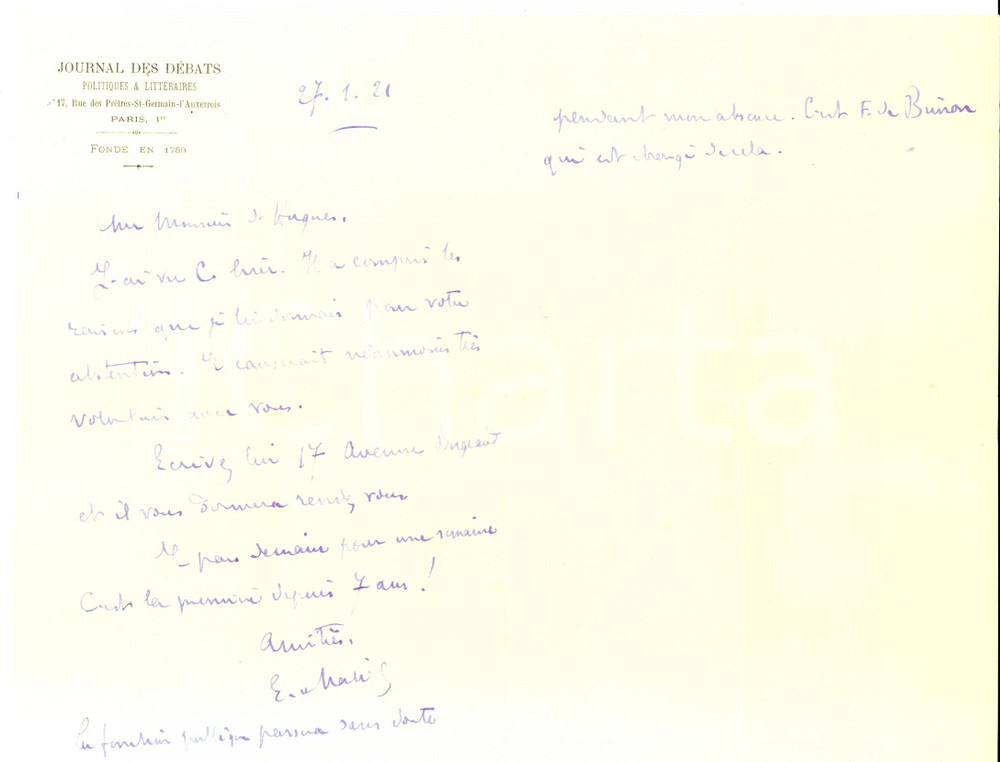 JOURNAL DES DÉBATS
POLITIQUES & LITTÉRAIRES
17, Rue des Prêtres-St-Germain-l'Auxerrois
PARIS, 1er
FONDÉ EN 1789
27.1.21
Cher Monsieur d'Hugues.
J'ai vu C. hier. Il a compris les
raisons que je lui donnais pour votre
abstention. Il causerait néanmoins très
volontiers avec vous.
Ecrivez lui 17 Avenue Bugeaud
et il vous donnera rendez vous
Je pars demain pour une semaine
C'est la première depuis 7 ans !
Amitiés.
E. de
La fonction publique passera sans doute
pendant mon absence. C'est F. de Brinon
qui est chargé de cela.